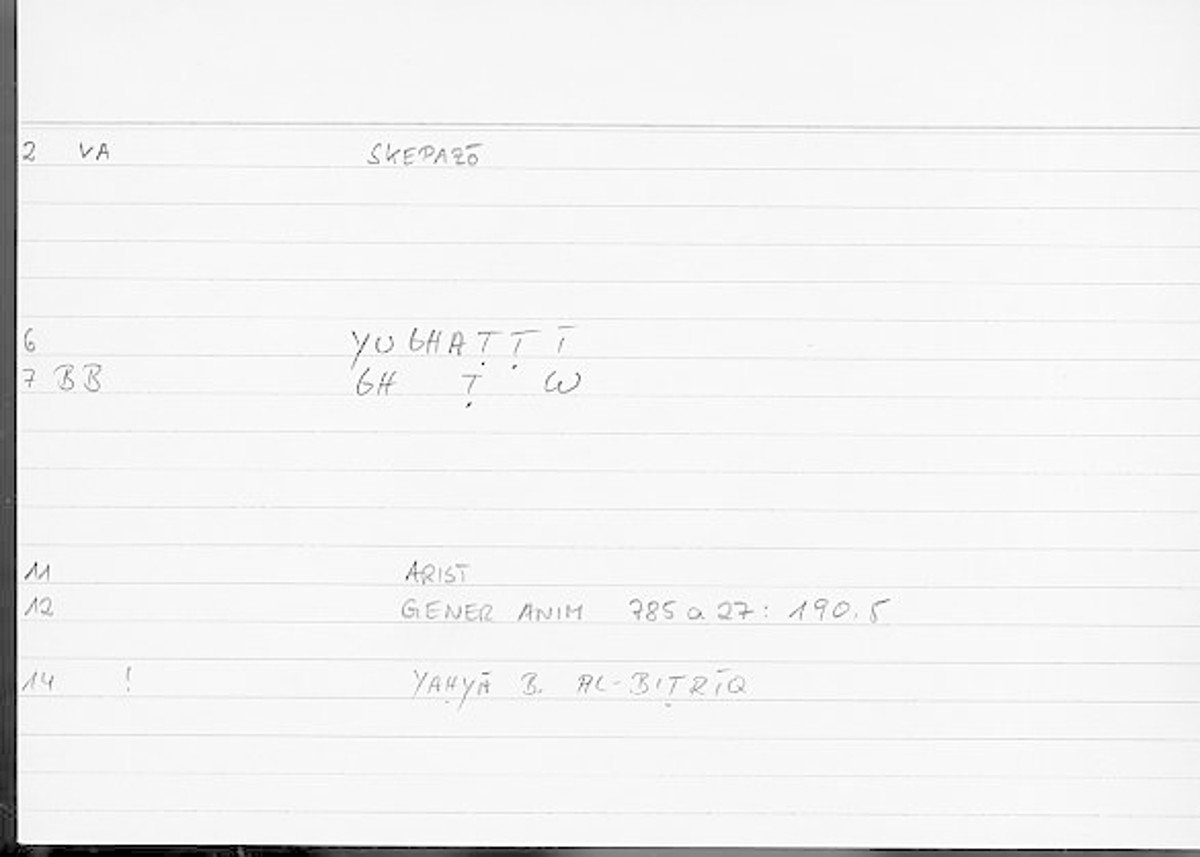 2 VA SKEPAZŌ
6 YUGHAṬṬĪ
7 BB GH Ṭ W
11 ARIST
12 GENER ANIM 785 a 27 : 190.5
14 ! YAḤYĀ B. AL-BIṬRĪQ